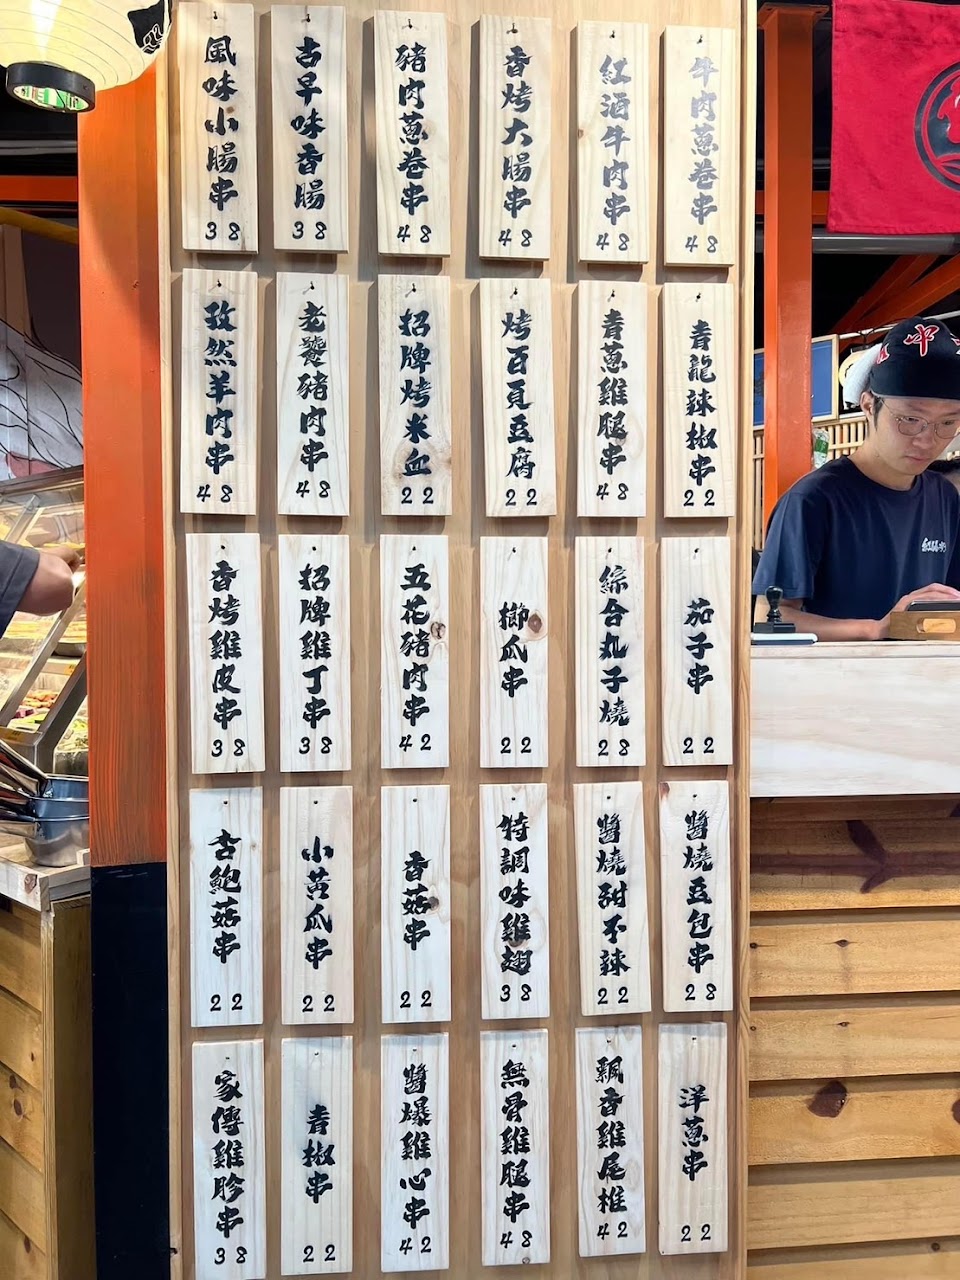 牛肉蔥卷串
48
紅酒牛肉串
48
香烤大腸串
48
豬肉蔥卷串
48
古早味香腸
38
風味小腸串
38
青龍辣椒串
22
青蔥雞腿串
48
烤百頁豆腐
22
招牌烤米血
22
老饕豬肉串
48
孜然羊肉串
48
茄子串
22
綜合丸子燒
28
櫛瓜串
22
五花豬肉串
42
招牌雞丁串
38
香烤雞皮串
38
醬燒豆包串
28
醬燒甜不辣
22
特調味雞翅
38
香菇串
22
小黃瓜串
22
杏鮑菇串
22
洋蔥串
22
飄香雞尾椎
42
無骨雞腿串
48
醬爆雞心串
42
青椒串
22
家傳雞胗串
38